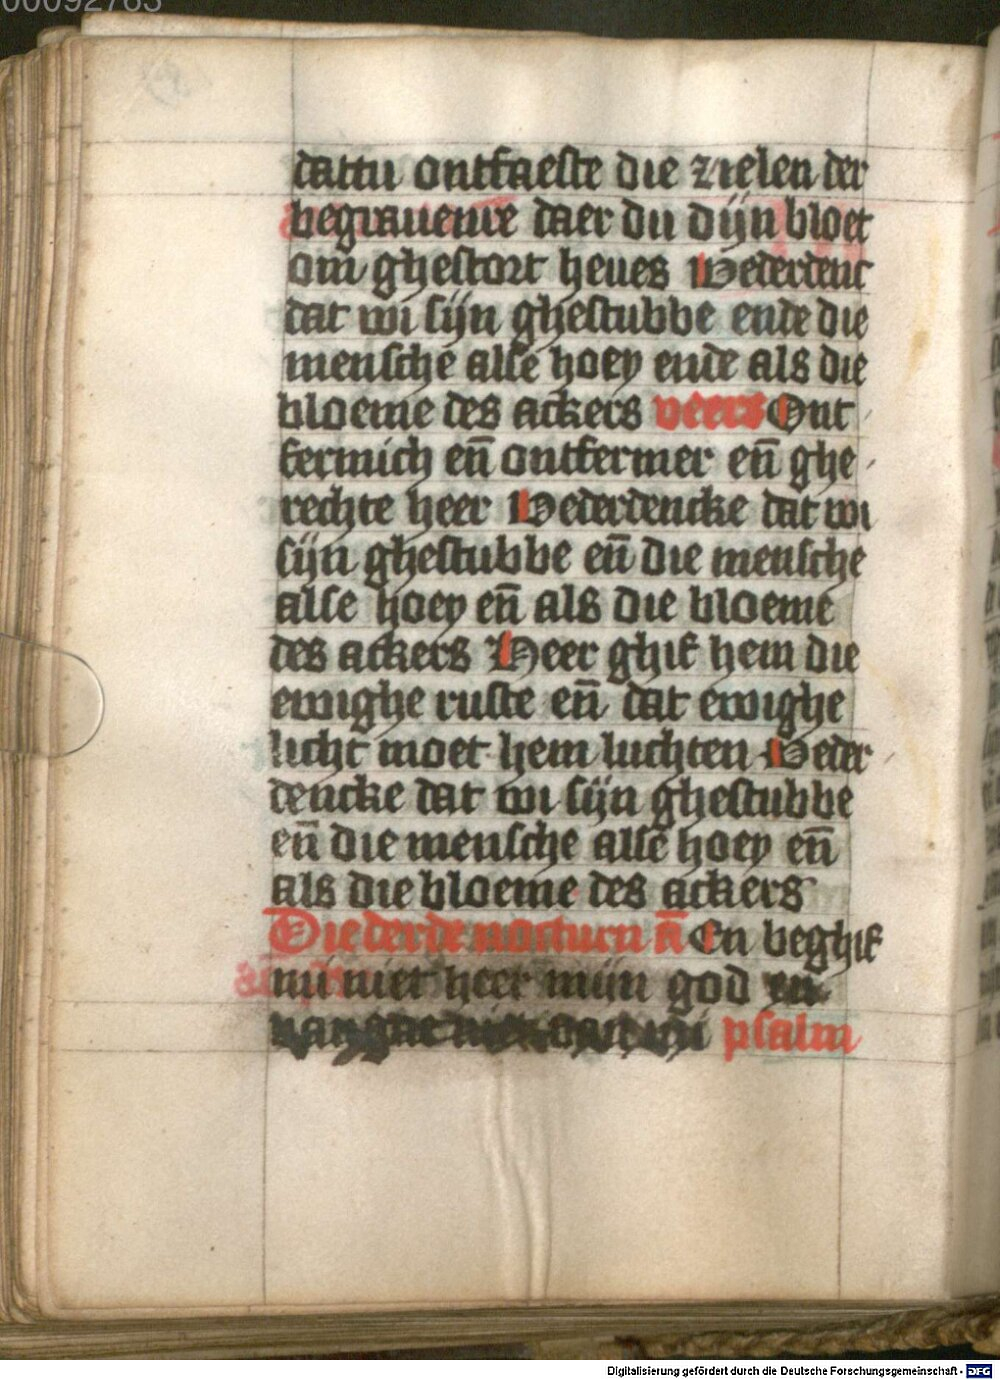 00092763
dattu ontfaeste die zielen der
begrauenre daer du dijn bloet
om ghestort heues Wederdenc
dat wi sijn ghestubbe ende die
mensche alse hoey ende als die
bloeme des ackers veers Ont
fermich eñ ontfermer eñ ghe
rechte heer Wederdencke dat wi
sijn ghestubbe eñ die mensche
alse hoey eñ als die bloeme
des ackers Heer ghif hem die
ewighe ruste eñ dat ewighe
licht moet hem luchten Weder
dencke dat wi sijn ghestubbe
eñ die mensche alse hoey eñ
als die bloeme des ackers
Die derde nocturn En beghif
mi niet heer mijn god en
psalm
Digitalisierung gefördert durch die Deutsche Forschungsgemeinschaft - DFG